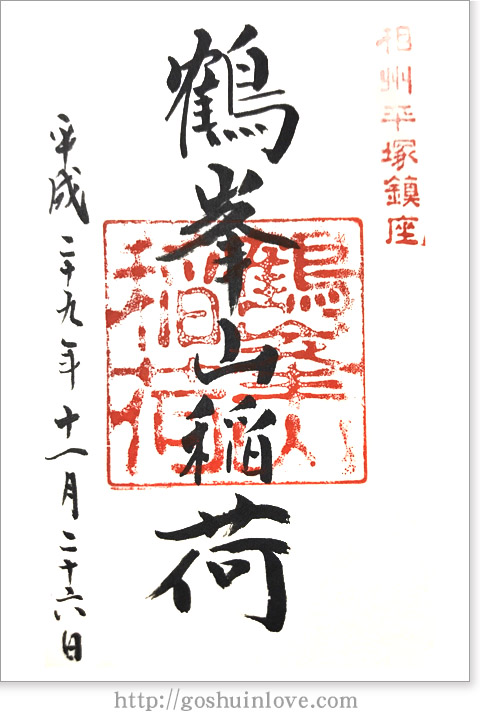 相州平塚鎮座
鶴峯山稲荷
鶴峯山
稲荷
平成二十九年十一月二十六日
http://goshuinlove.com